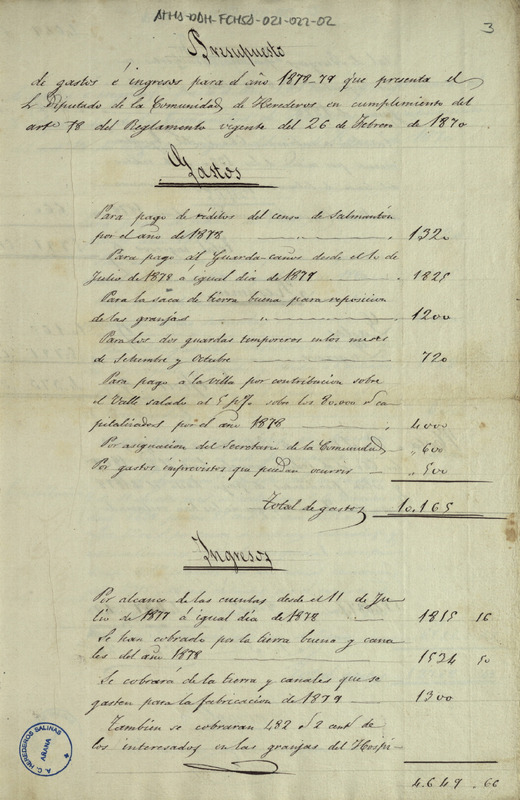 ATHA-DAH-FCHSA-021-022-02
3
Presupuesto
de gastos é ingresos para el año 1878-79 que presenta el
Diputado de la Comunidad de Herederos en cumplimiento del
arto 78 del Reglamento vigente del 26 de Febrero de 1870
Gastos
Para pago de réditos del censo de Salmantón
por el año de 1878 1320
Para pago al Guarda-caños desde el 1o de
Julio de 1878 á igual dia de 1879 1825
Para la saca de tierra buena para reposicion
de las granjas " 1200
Para los dos guardas temporeros en los meses
de Setiembre y Octubre 720
Para pago á la villa por contribucion sobre
el Valle salado al 5 p% sobre los 80.000 rs ca
pitalizados por el año 1878 4000
Por asignacion del Secretario de la Comunidad " 600
Por gastos imprevistos que puedan ocurrir " 500
Total de gastos 10.165
Ingresos
Por alcance de las cuentas desde el 11 de Ju
lio de 1877 á igual dia de 1878 1815 16
Se han cobrado por la tierra buena y cana
les del año 1878 1534 50
Se cobrará de la tierra y canales que se
gasten para la fabricacion de 1879 1300
Tambien se cobraran 482 rs 2 cents de
los interesados en las granjas del Hospi-
4.649 .66
A. C. HEREDEROS SALINAS
AÑANA